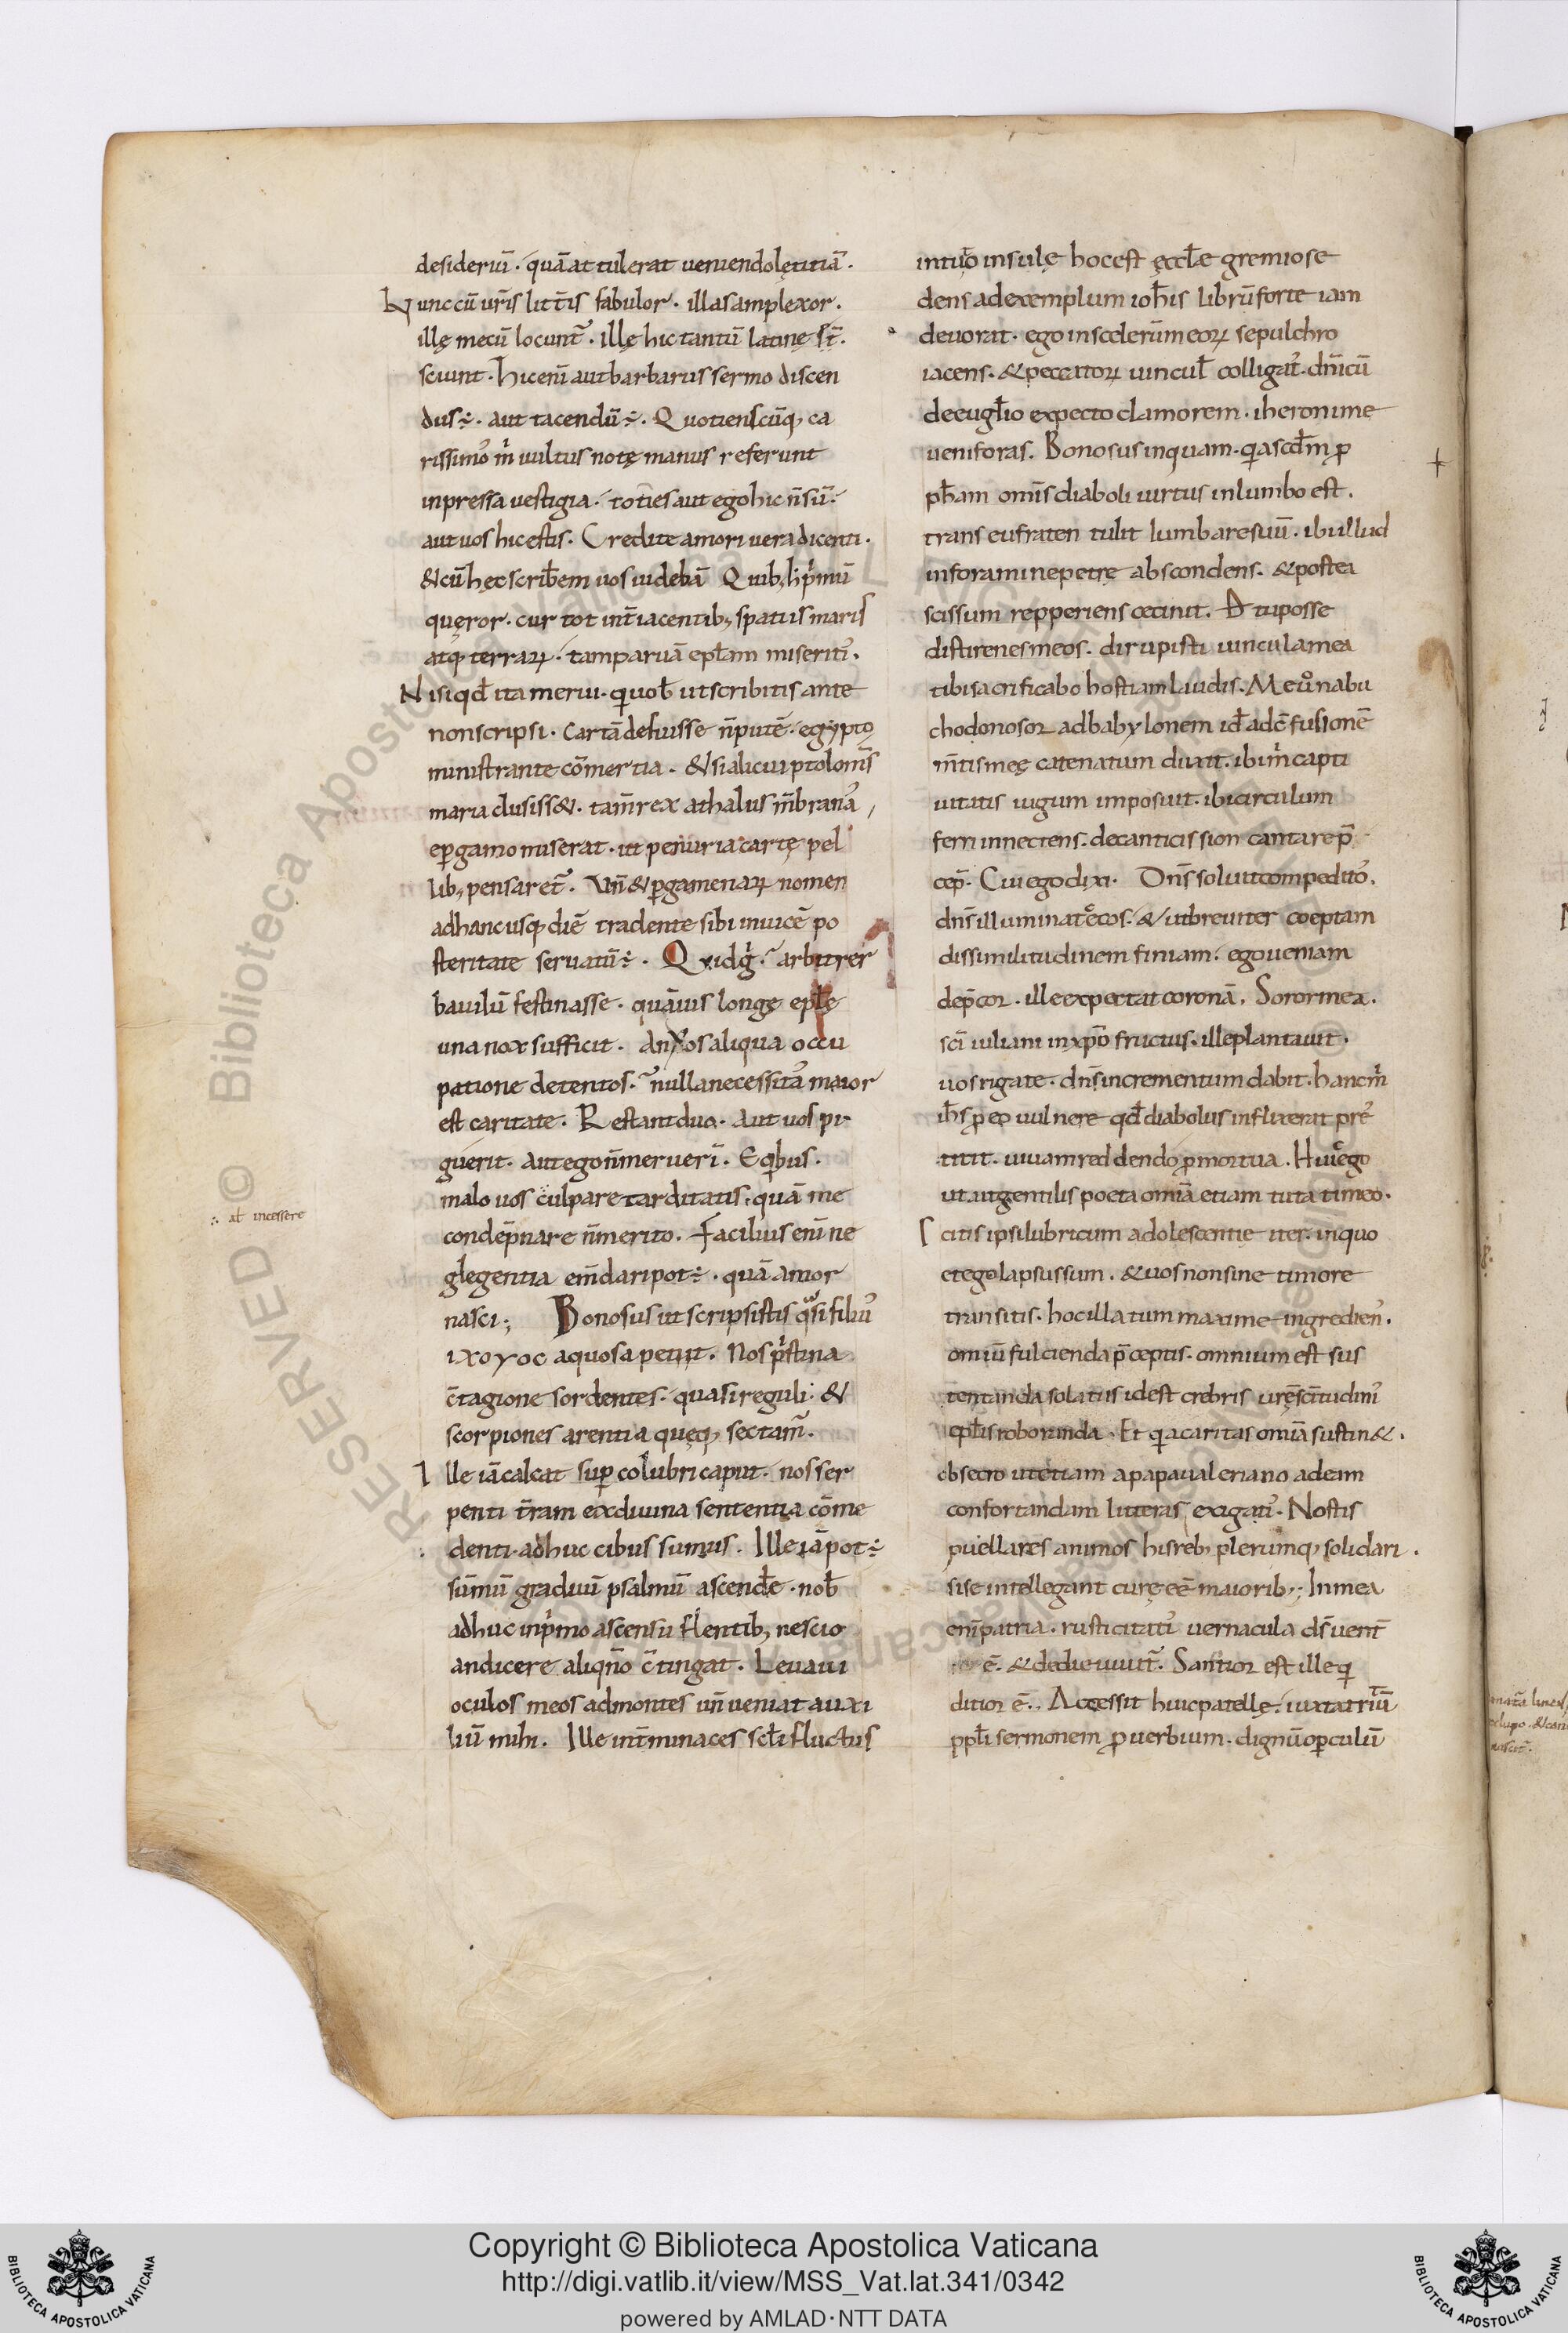 desideriū. quā at tulerat ueniendo lętitiā.
Nunc cū ur̄is litt̄is fabulor. illas amplexor.
illę mecū locunt̄. illę hic tantū latinę st̄.
sciunt. hic enī aut barbarus sermo discen
dus ÷. aut tacendū ÷. Quotienscūq; ca
rissimo' m̄ uultus notę manus referunt
inpressa uestigia. toties aut ego hic n̄ sū.
aut uos hic estis. Credite amori uera dicenti.
& cū hęc scrib̄em uos uidebā Quib; hp̄mū
quęror. cur tot int̄iacentib; spatiis maris
atq; terrarꝝ. tam paruā epl̄am miserit'.
Nisi qd̄ ita merui. qi uob̄ ut scribitis ante
non scripsi. Cartā defuisse n̄ putē. egypto
ministrante cōmertia. & si alicui ptolom̄s
maria clusiss&. tam̄ rex athalus m̄brana'
e ꝑgamo miserat. ut penuria cartę pel
lib; pensaret̄. Vn̄ & ꝑgamenarꝝ nomen
ad hanc usq; diē tradente sibi inuicē po
steritate seruatū ÷. Quid g̊. arbitrer
bauilū festinasse. quāuis longę epl̄ę
una nox sufficit. An uos aliqua occu
patione detentos. nulla necessita' maior
est caritate. Restant duo. aut uos pi
guerit. aut ego n̄ meruerī. E qibus.
malo uos culpare tarditatis. quā me
condēpnare n̄ merito. Facilius enī ne
glegentia em̄dari pot ÷. quā amor
nasci; Bonosus ut scripsistis qͣsi filiu'
ιχογος aquosa petiit. Nos p̄stina
c̄tagione sordentes. quasi reguli. &
scorpiones arentia quęq; sectam̄.
Ille iā calcat suꝑ colubri caput. nos ser
penti t̄ram ex diuina sententia cōme
denti. adhuc cibus sumus. Ille iā pot ÷
sūmū graduū psalmū ascend̄e. nob̄
adhuc in p̄mo ascensu flentib; nescio
an dicere aliqn̄o c̄tingat. Leuaui
oculos meos ad montes un̄ ueniat auxi
liū mihi. Ille int̄ minaces scl̄i fluctus
∴ al̄ incessere
in tuto insulę hoc est ęccl̄e gremio se
dens ad exemplum ioh̄is librū forte iam
deuorat. ego in scelerūmeorꝝ sepulchro
iacens. & peccatorꝝ uincul̄ colligat'. dn̄icū
de euḡlio expecto clamorem. iheronime
ueni foras. Bonosus inquam. qia scd̄m ꝓ
ph̄am omīs diaboli uirtus in lumbo est.
trans eufraten tulit lumbare suū. ibi illud
in foramine petrę abscondens. & postea
scissum repperiens cecinit. Dn̄e tu posse
disti renes meos. dirupisti uincula mea
tibi sacrificabo hostiam laudis. Me ů nabu
chodonosor ad babylonem id̄ ad c̄fusionē
m̄tis meę catenatum duxit. ibi m̄ capti
uitatis iugum imposuit. ibi circulum
ferri innectens. de canticis sion cantare p̄
cep̄. Cui ego dixi. Dn̄s soluit compedito'.
dn̄s illuminat cęcos. & ut breuiter coeptam
dissimilitudinem finiam. ego ueniam
dep̄cor. ille expectat coronā. Soror mea.
sc̄i iuliani in xp̄o fructus. ille plantauit.
uos rigate. dn̄s incrementum dabit. hanc m̄
ih̄s ꝓ eo uulnere qd̄ diabolus inflixerat pre'
titit. uiuam reddendo ꝓ mortua. Huic ego
ut ait gentilis poeta omīa etiam tuta timeo.
Scitis ipsi lubricum adolescentię iter. in quo
et ego lapsus sum. & uos non sine timore
transitis. hoc illa tum maxime ingredien'.
omiū fulcienda p̄ceptis. omnium est sus
tentanda solatiis id est crebris ur̄ę sc̄itudini'
epl̄is roboranda. Et qia caritas omīa sustin&.
obsecro ut etiam a papa ualeriano ad eam
confortandam litteras exigati'. Nostis
puellares animos his reb; plerumq; solidari.
si se intellegant curę eē maiorib;. In mea
enī patria. rusticitati' uernacula ds̄ uent̄
ē. & de die uiuit̄. Sanctior est ille qi
ditior ē. Accessit huic patellę. iuxta tritū
ppl̄i sermonem ꝓuerbium. dignū oꝑculū